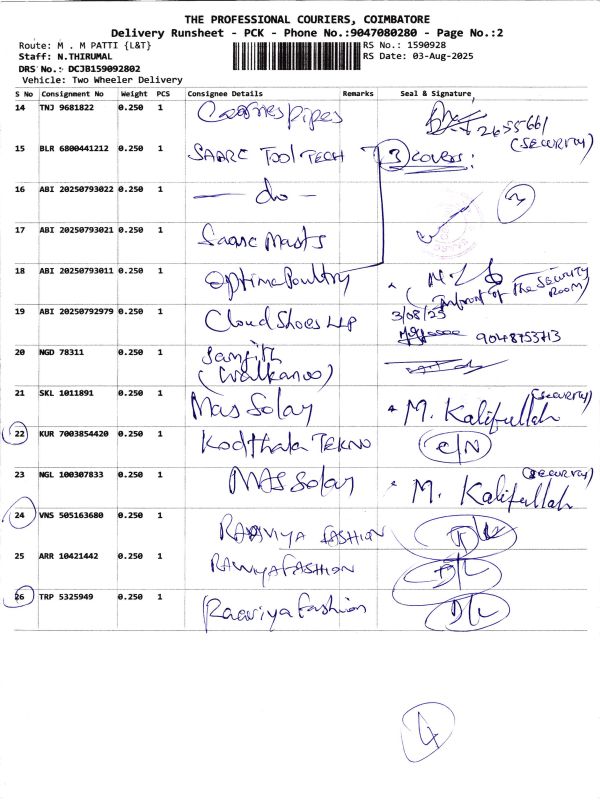 THE PROFESSIONAL COURIERS, COIMBATORE
Delivery Runsheet - PCK - Phone No.:9047080280 - Page No.:2
Route: M . M PATTI {L&T} RS No.: 1590928
Staff: N.THIRUMAL RS Date: 03-Aug-2025
DRS No.: DCJB159092802
Vehicle: Two Wheeler Delivery
S No Consignment No Weight PCS Consignee Details Remarks Seal & Signature
14 TNJ 9681822 0.250 1 pipes 2655661
(SECURITY)
15 BLR 6800441212 0.250 1 SAARC TOOL TECH 3 covers:
16 ABI 20250793022 0.250 1 — do — 3
17 ABI 20250793021 0.250 1 Saarc Masts
18 ABI 20250793011 0.250 1 Optima Poultry
(Infront of The SECURITY ROOM)
19 ABI 20250792979 0.250 1 Cloud Shoes LLP 3/08/25
9048753713
20 NGD 78311 0.250 1 Sanjith
(Walkaroo)
21 SKL 1011891 0.250 1 Mas Solar M. Kalifullah (SECURITY)
22 KUR 7003854420 0.250 1 Kodthala TEKNO C/N
23 NGL 100307833 0.250 1 MAS Solar M. Kalifullah (SECURITY)
24 VNS 505163680 0.250 1 RAAVIYA FASHION D/L
25 ARR 10421442 0.250 1 RAAVIYA FASHION D/L
26 TRP 5325949 0.250 1 Raaviya Fashion D/L
4